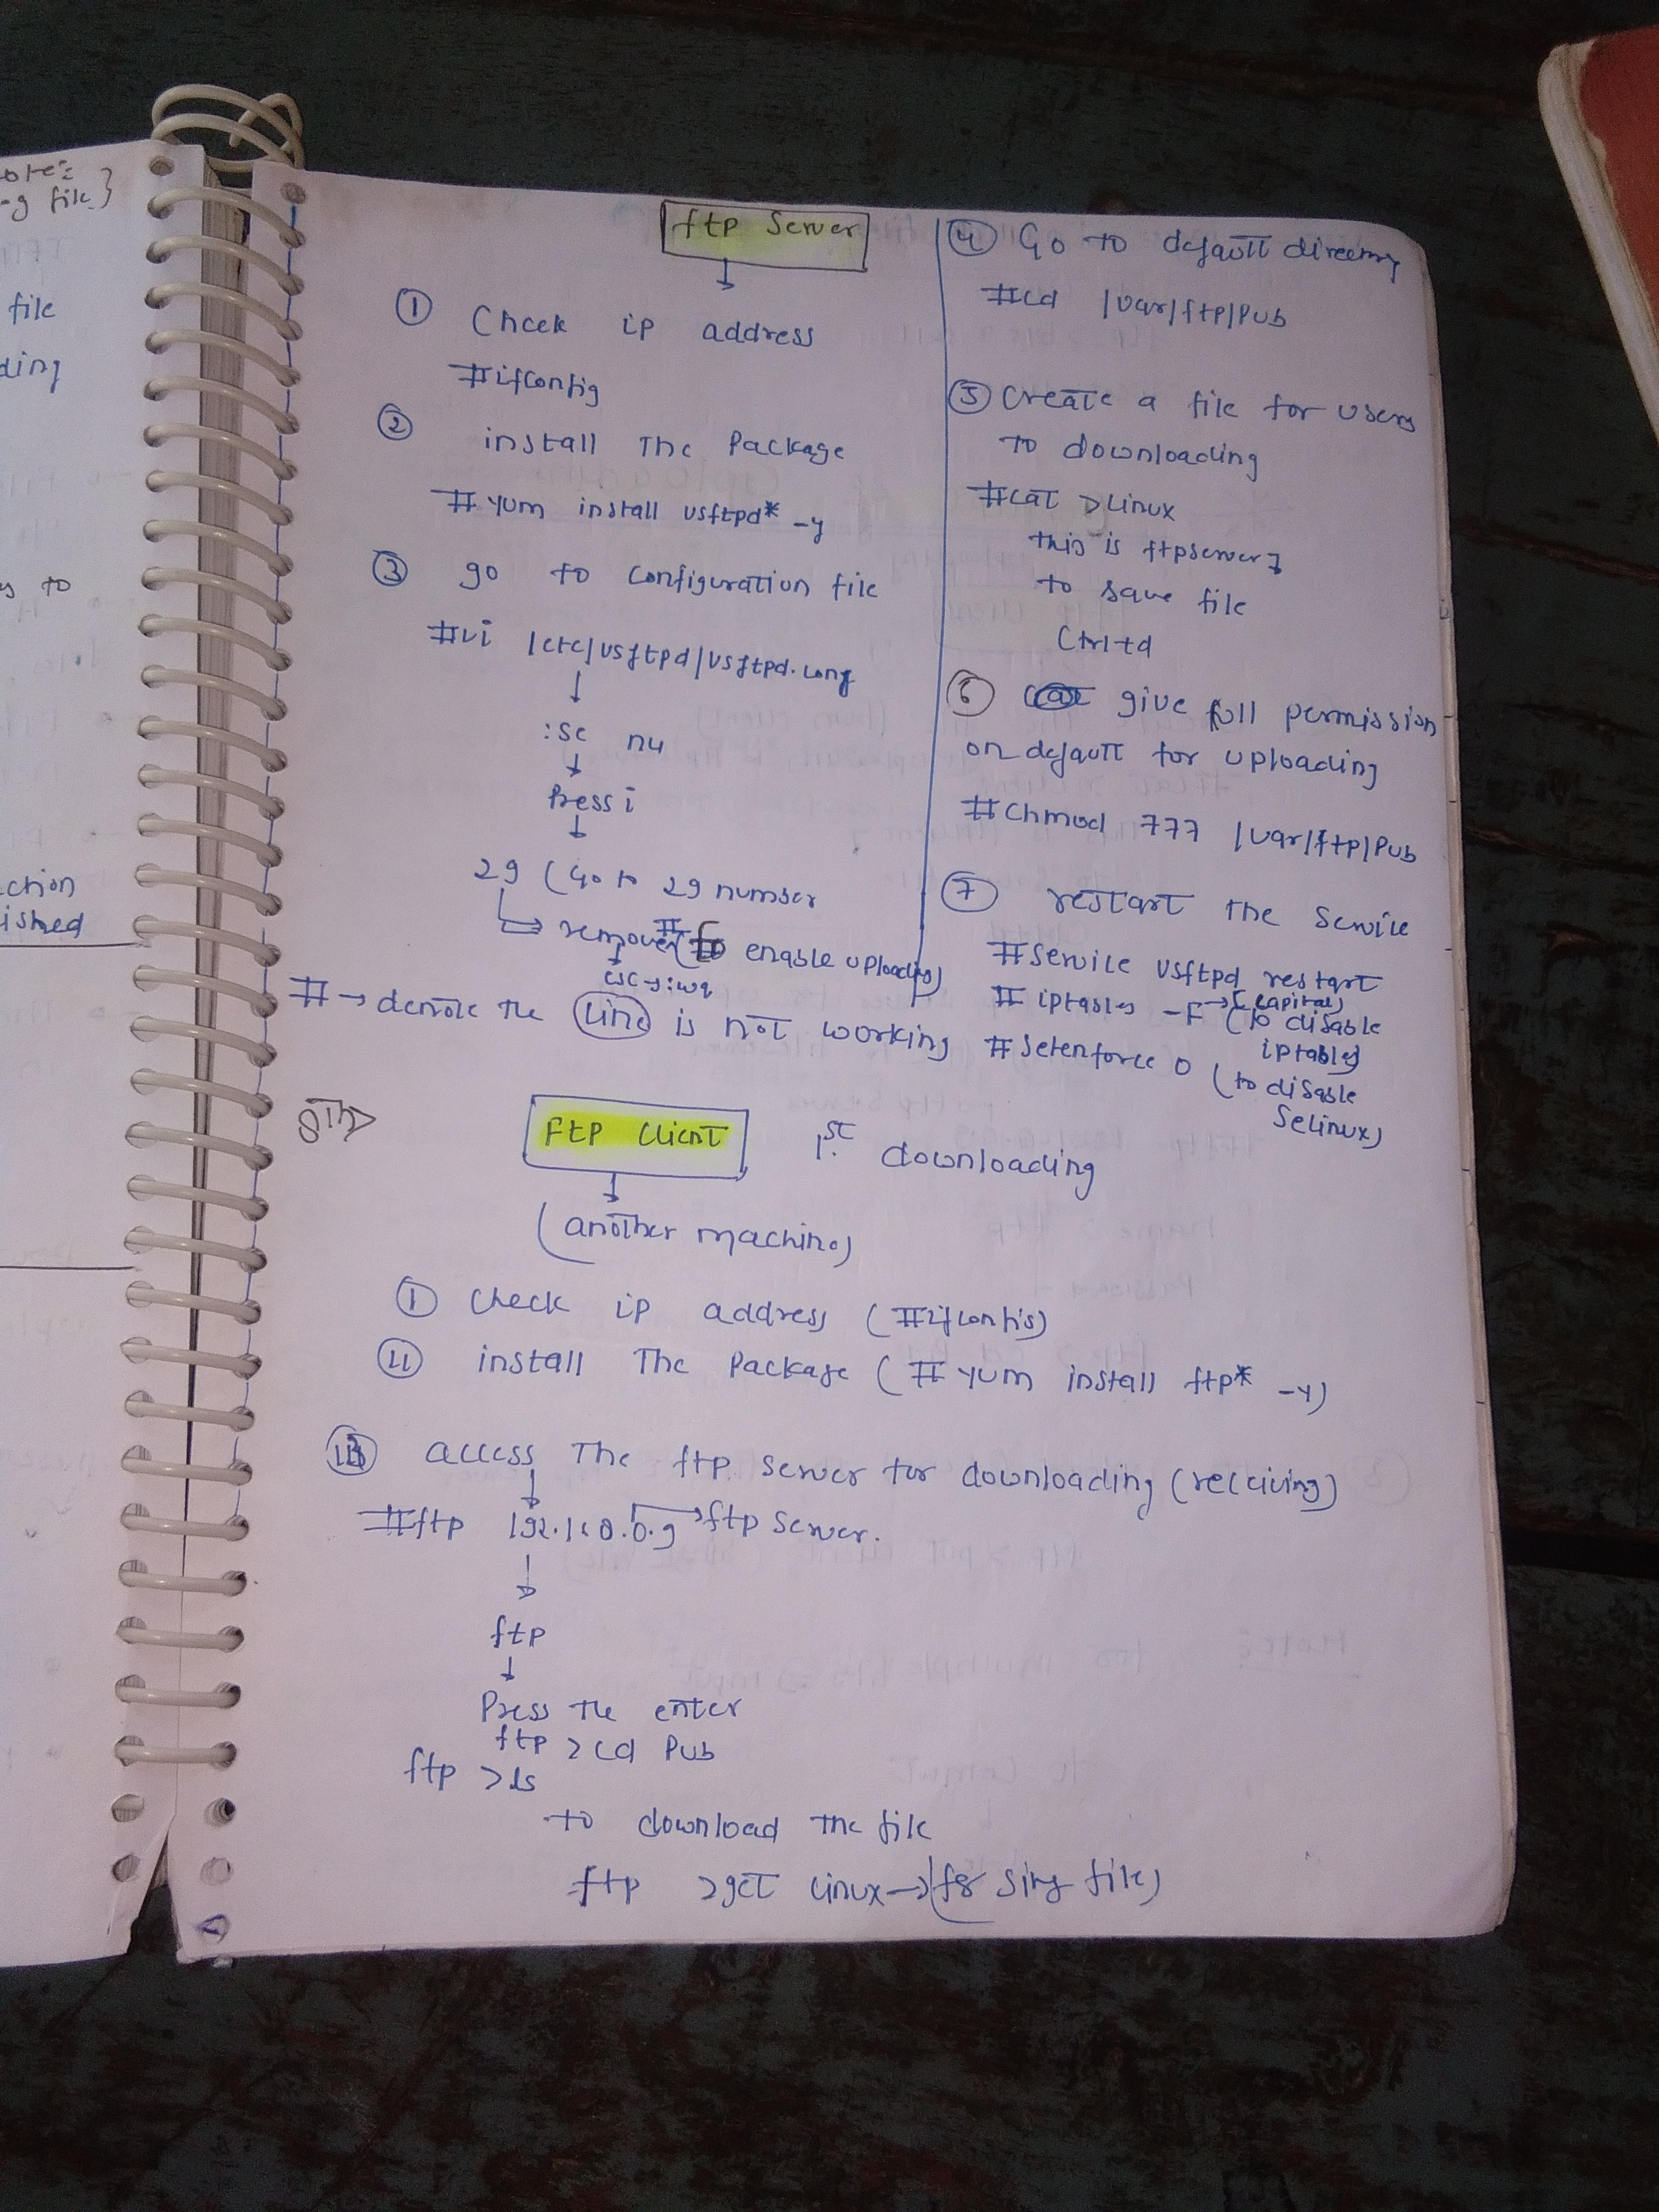 ote:
g file}
file
ding
s to
ction
ished
ftp Server
① Check ip address
#ifconfig
② install The Package
# yum install vsftpd* -y
③ go to configuration file
#vi /etc/vsftpd/vsftpd.conf
:se nu
Press i
29 (Go to 29 number
remove # (to enable uploading)
esc → :wq
# → denote the line is not working
④ Go to default directory
#cd /var/ftp/pub
⑤ Create a file for users
to downloading
#cat >linux
this is ftpserver
to save file
Ctrl+d
⑥ give full permission
on default for uploading
#chmod 777 /var/ftp/pub
⑦ restart the service
#service vsftpd restart
# iptables -F → [capital] (to disable
iptables)
#setenforce 0 (to disable
Selinux)
FtP Client 1st. downloading
(another machine)
① Check ip address (#ifconfig)
② install The Package (# yum install ftp* -y)
③ access The ftp server for downloading (receiving)
#ftp 192.168.0.9 → ftp server.
ftp
Press the enter
ftp >cd Pub
ftp >ls
to download the file
ftp >get linux → (for sing file)